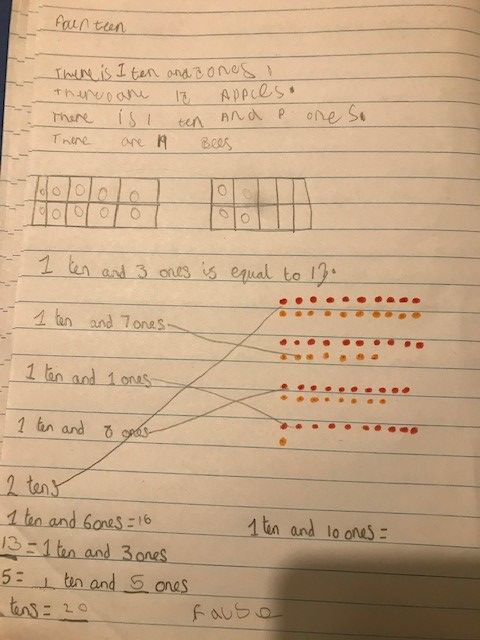 Fourteen
There is 1 ten and 3 ones.
There are 13 APPles.
There is 1 ten AND 9 ones.
There are 19 Bees
1 ten and 3 ones is equal to 13.
1 ten and 7 ones
1 ten and 1 ones
1 ten and 8 ones
2 tens
1 ten and 6 ones = 16
1 ten and 10 ones =
13 = 1 ten and 3 ones
5 = 1 ten and 5 ones
tens = 20